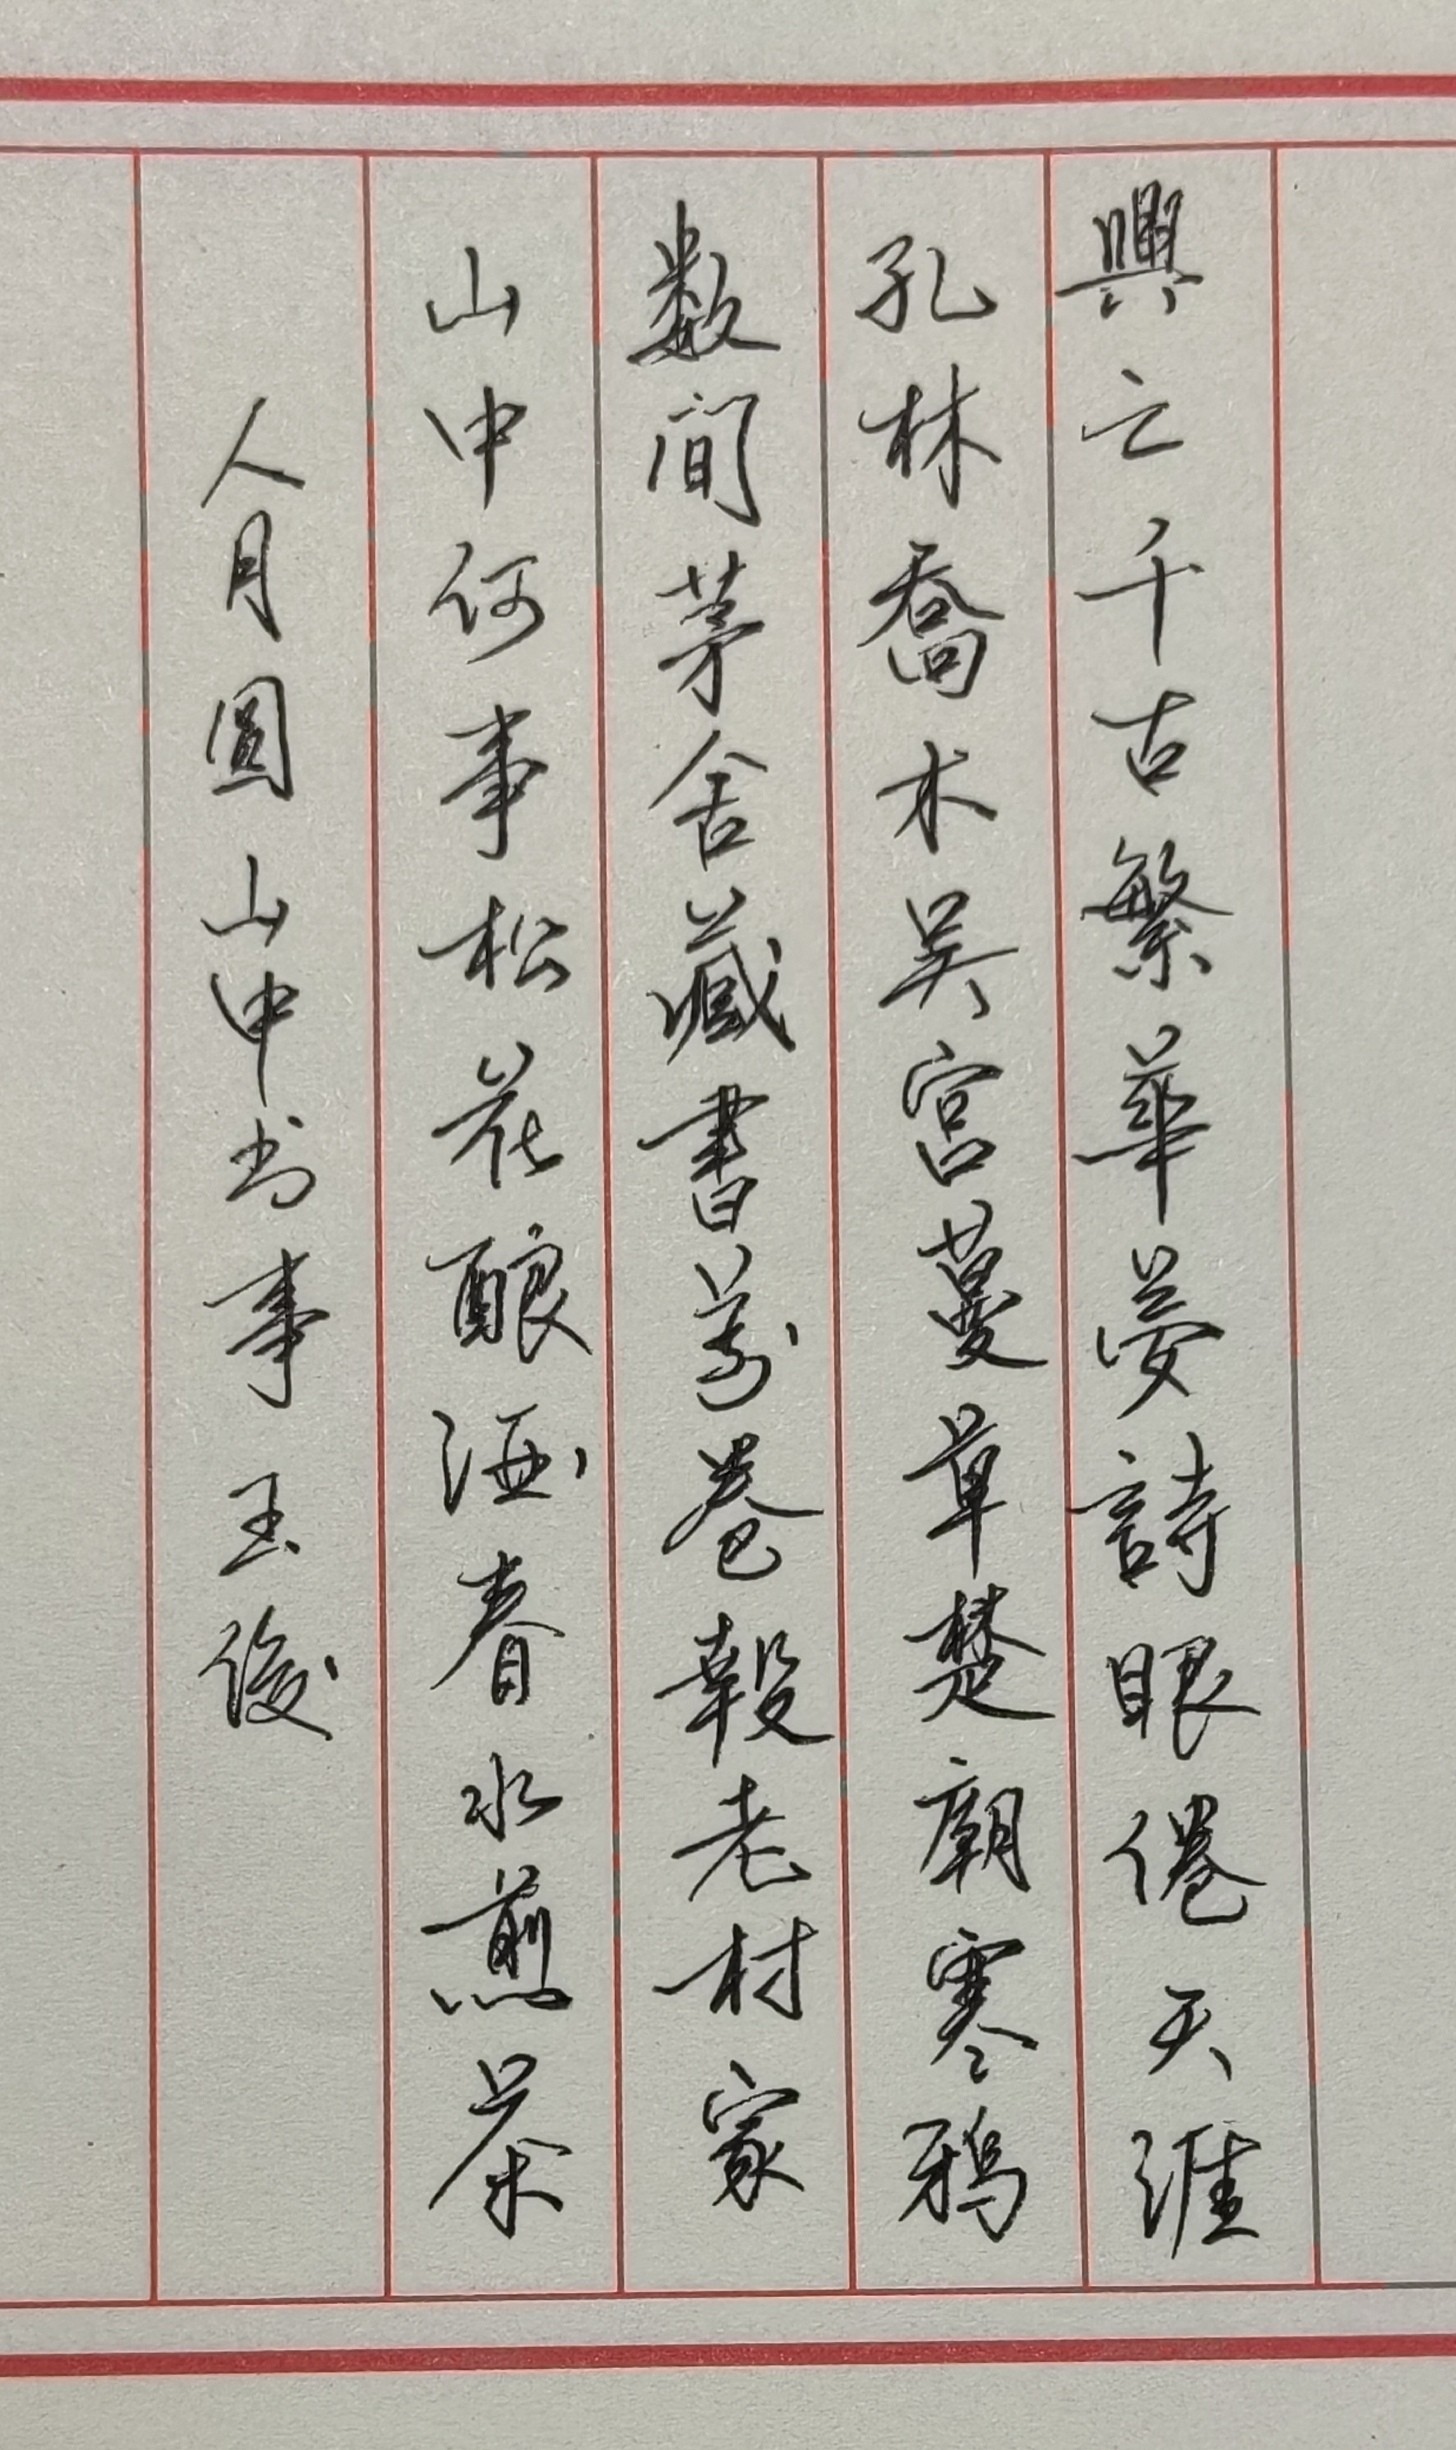 興亡千古繁華夢詩眼倦天涯
孔林喬木吳宮蔓草楚廟寒鴉
数间茅舍藏書萬卷投老村家
山中何事松花酿酒春水煎茶
人月圆山中书事玉俊